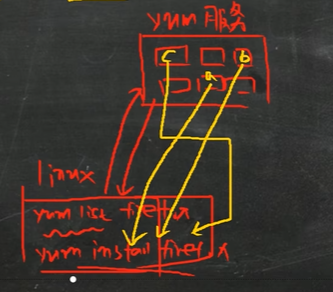 yum 服务
c
a b
linux
yum list firefox
yum install firefox